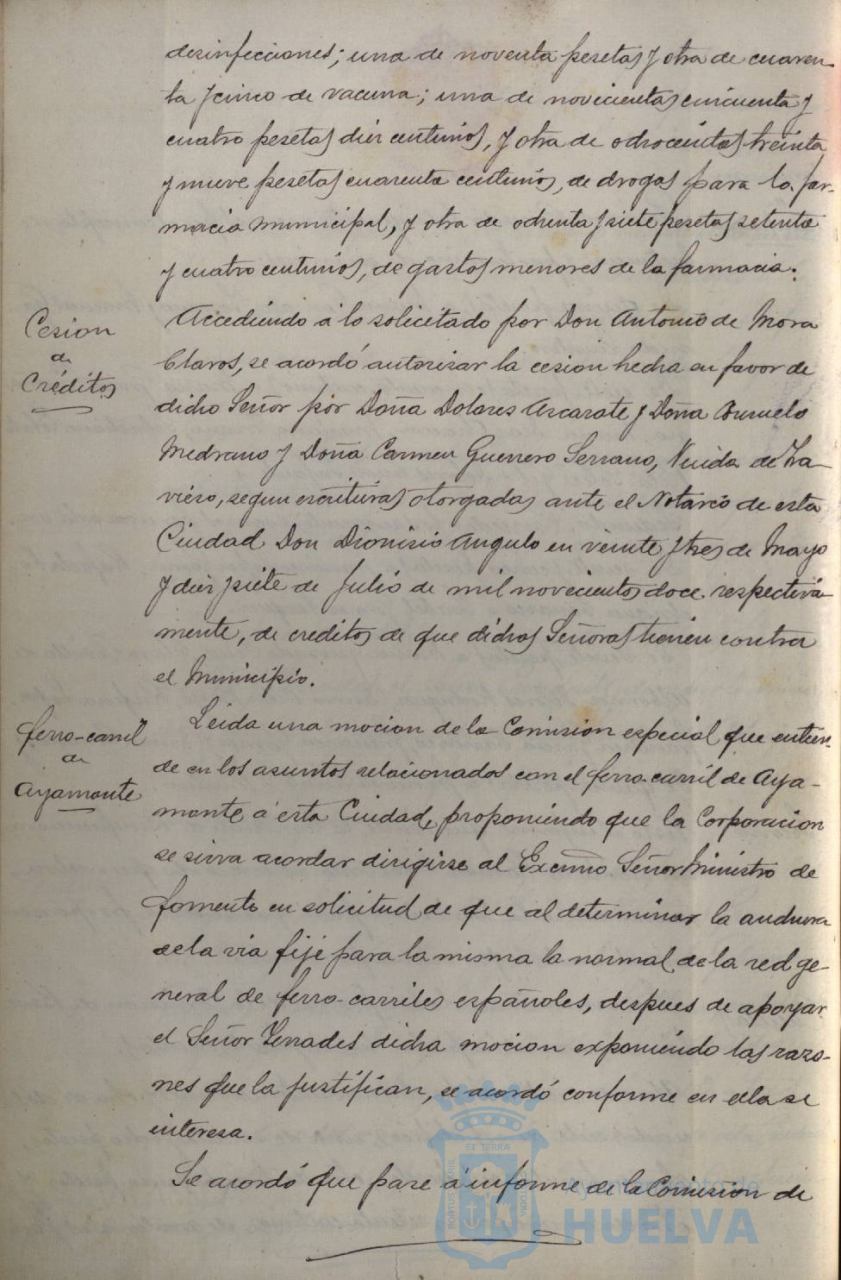 desinfecciones; una de noventa pesetas y otra de cuaren-
ta y cinco de vacuna; una de novecientas cincuenta y
cuatro pesetas diez centimos, y otra de ochocientas treinta
y nueve pesetas cuarenta centimos, de drogas para la far-
macia municipal, y otra de ochenta y siete pesetas setenta
y cuatro centimos, de gastos menores de la farmacia.
Cesion
de
Créditos
Accediendo á lo solicitado por Don Antonio de Mora
Claros, se acordó autorizar la cesion hecha en favor de
dicho Señor por Doña Dolores Ascarate y Doña Consuelo
Medrano y Doña Carmen Guerrero Serrano, Viuda de Tra-
vieso, segun escrituras otorgadas ante el Notario de esta
Ciudad Don Dionisio Angulo en veinte y tres de Mayo
y diez y siete de Julio de mil novecientos doce respectiva-
mente, de creditos de que dichas Señoras tienen contra
el Municipio.
ferro-carril
de
Ayamonte
Leida una mocion de la Comision especial que entien-
de en los asuntos relacionados con el ferro-carril de Aya-
monte á esta Ciudad, proponiendo que la Corporacion
se sirva acordar dirigirse al Excmo Señor Ministro de
fomento en solicitud de que al determinar la anchura
de la via fije para la misma la normal de la red ge-
neral de ferro-carriles españoles, despues de apoyar
el Señor Terrades dicha mocion exponiendo las razo-
nes que la justifican, se acordó conforme en ella se
interesa.
Se acordó que pase á informe de la Comision de
Ayuntamiento de
HUELVA